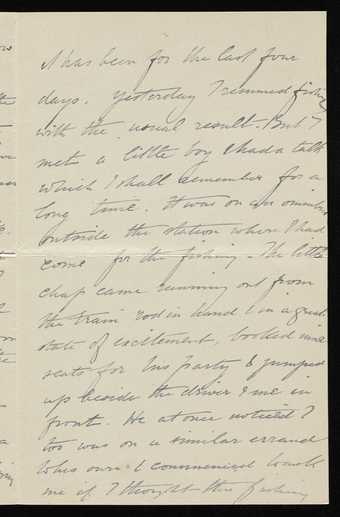 it has been for the last four
days. Yesterday I resumed fishing
with the usual result. But I
met a little boy & had a talk
which I shall remember for a
long time. It was on an omnibus
outside the station where I had
come for the fishing. The little
chap came running out from
the train rod in hand & in a great
state of excitement, booked
seats for his party & jumped
up beside the driver & me in
front. He at once noticed I
too was on a similar errand
to his own & commenced to ask
me if I thought the fishing